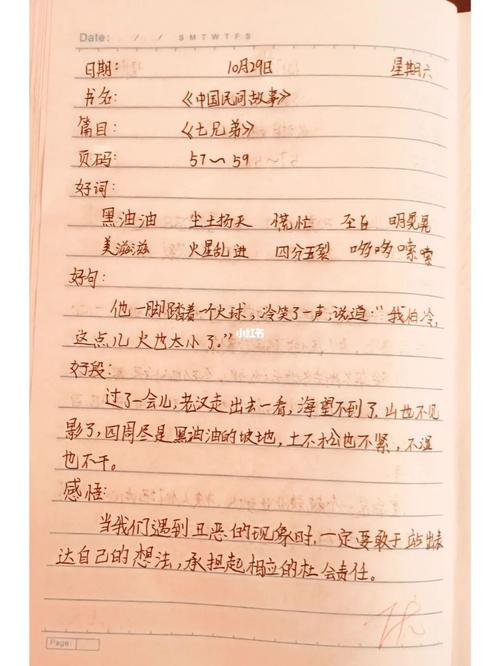 Date: / / S M T W T F S
日期: 10月29日 星期六
书名: 《中国民间故事》
篇目: 《七兄弟》
页码: 57~59
好词:
黑油油 尘土扬天 慌忙 明晃晃
美滋滋 火星乱迸 四分五裂 哆哆嗦嗦
好句:
他一脚踏着一个火球,冷笑了一声,说道:“我怕冷,
这点儿火也太小了。”
小红书
好段:
过了一会儿,老汉走出去一看,海望不到了,山也不见
影了,四周尽是黑油油的坡地,土不松也不紧,不湿
也不干。
感悟:
当我们遇到丑恶的现象时,一定要敢于站出来表
达自己的想法,承担起相应的社会责任。
优
Page: